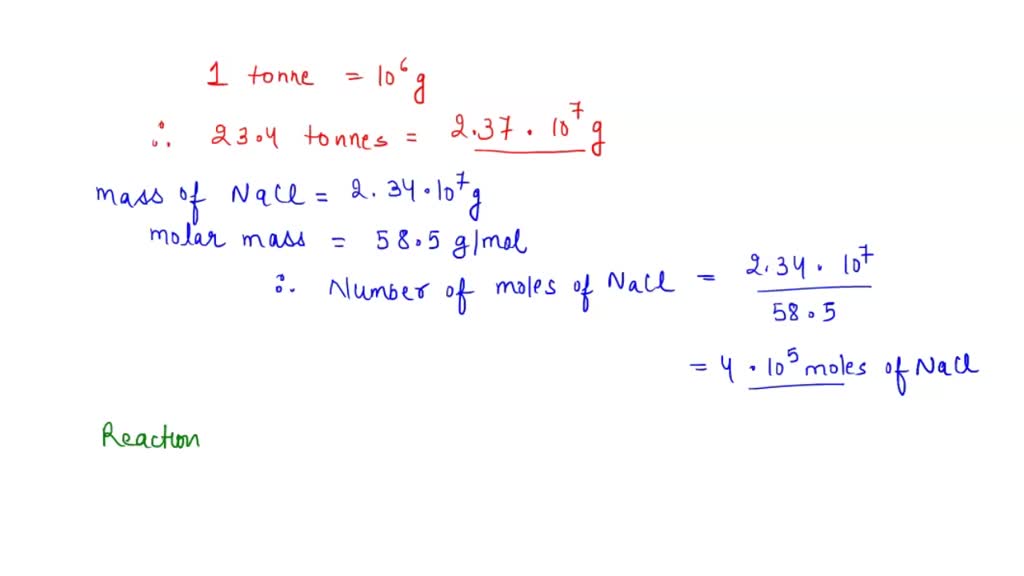 1 tonne = 10⁶ g
∴ 23.4 tonnes = 2.37 · 10⁷ g
mass of NaCl = 2.34 · 10⁷ g
molar mass = 58.5 g/mol
∴ Number of moles of NaCl = 2.34 · 10⁷ / 58.5
= 4 · 10⁵ moles of NaCl
Reaction